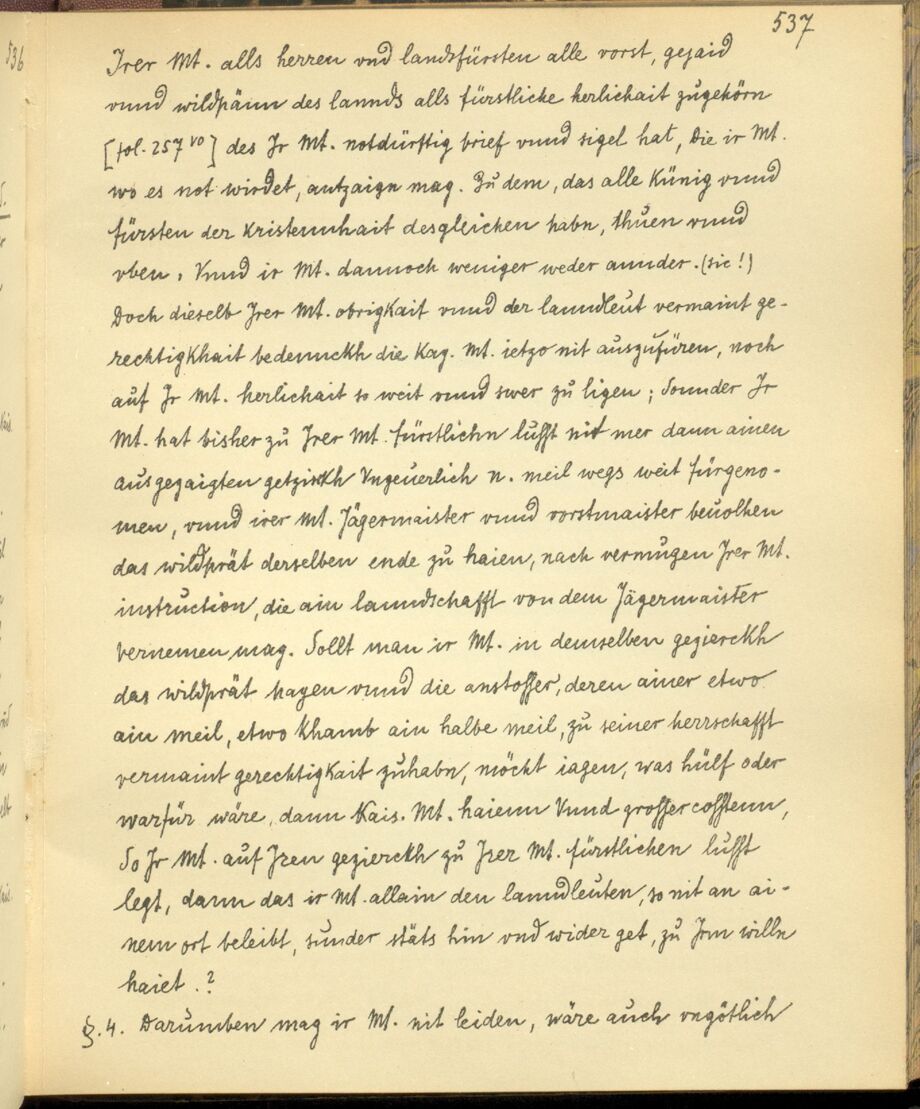 537
Irer Mt. alls herren vnd landsfürsten alle vorst, gejaid
vnnd wildpänn des lannds alls fürstliche herlichait zugehörn
[fol. 257 vo] des Ir Mt. notdürftig brief vnnd sigel hat, die ir Mt.
wo es not wirdet, antzaign mag. Zu dem, das alle Künig vnnd
fürsten der Kristennhait desgleichen habn, thuen vnnd
vben, Vnnd ir Mt. dannoch weniger weder annder. (sic!)
Doch dieselb Irer Mt. obrigkait vnnd der lanndleut vermaint ge-
rechtigkhait bedennckh die Kay. Mt. ietzo nit auszufüren, noch
auf Ir Mt. herlichait so weit vnnd swer zu ligen; Sonnder Ir
Mt. hat bisher zu Irer Mt. fürstlichn lufft nit mer dann ainen
ausgezaigten getzirkh Vngeuerlich n. meil wegs weit fürgeno-
men, vnnd irer Mt. Jägermaister vnnd vorstmaister beuolhen
das wildprät derselben ende zu haien, nach vermugen Irer Mt.
instruction, die ain lanndschafft von dem Jägermaister
vernemen mag. Sollt man ir Mt. in demselben gezierckh
das wildprät hayen vnnd die anstosser, deren ainer etwo
ain meil, etwo khamb ain halbe meil, zu seiner herrschafft
vermaint gerechtigkait zuhabn, möcht iagen, was hülf oder
warfür wäre, dann Kais. Mt. haienn Vnnd grosser cosstenn,
So Ir Mt. auf Iren gezierckh zu Irer Mt. fürstlichen lufft
legt, dann das ir Mt. allain den lanndleuten, so nit an ai-
nem ort beleibt, sunder stäts hin vnd wider get, zu Irm willn
haiet.?
§. 4. Darumben mag ir Mt. nit leiden, wäre auch vngötlich
536